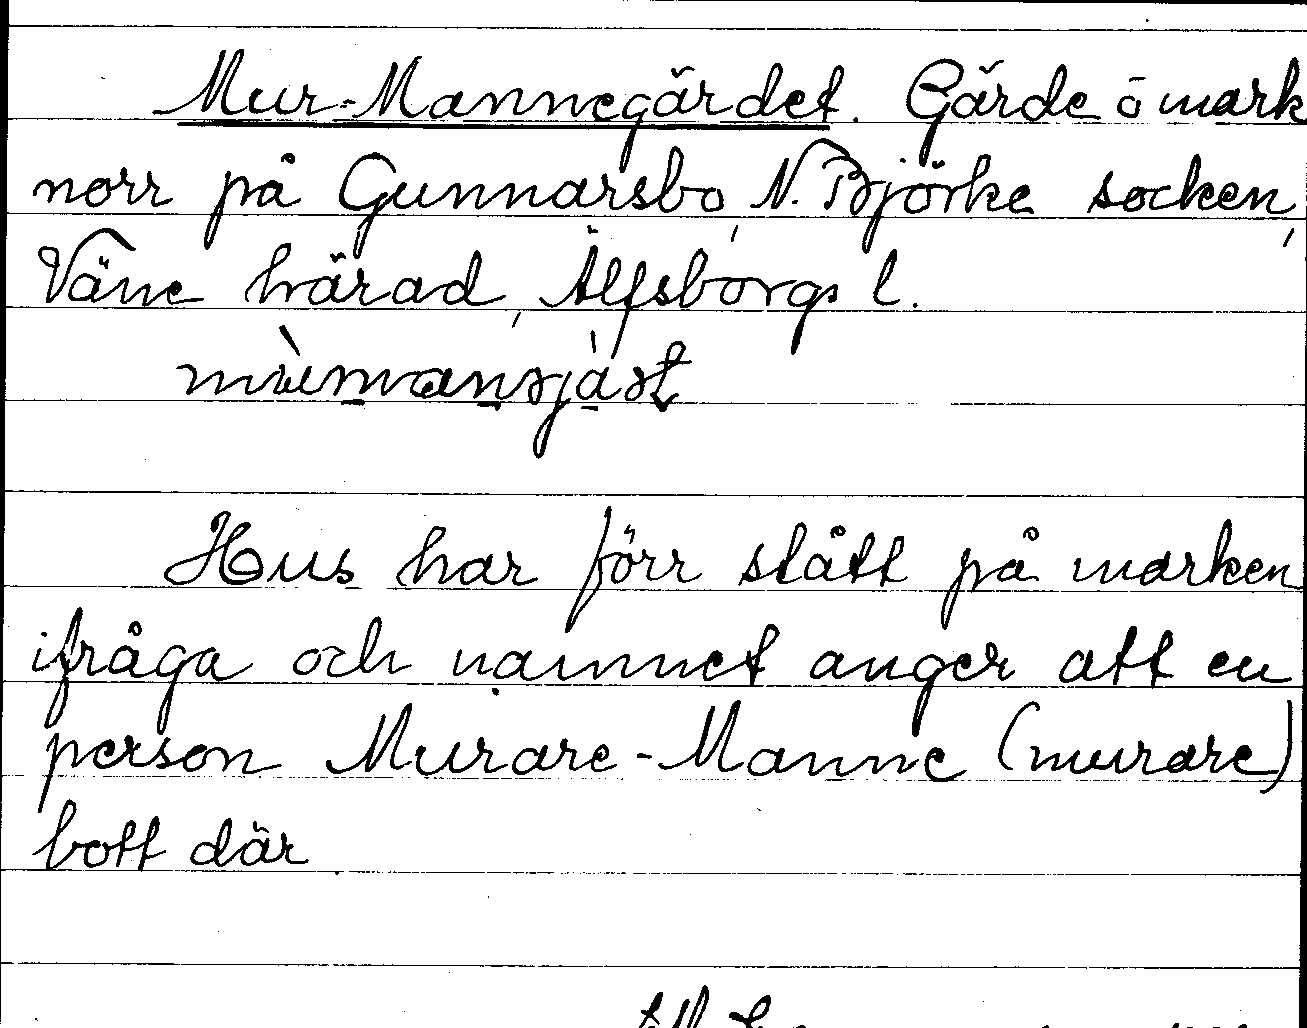 Mur-Mannegärdet. Gärde ō mark
norr på Gunnarsbo, N. Björke socken,
Väne härad, Älfsborgs l.
Hus har förr stått på marken
ifråga och namnet anger att en
person Murare-Manne (murare)
bott där